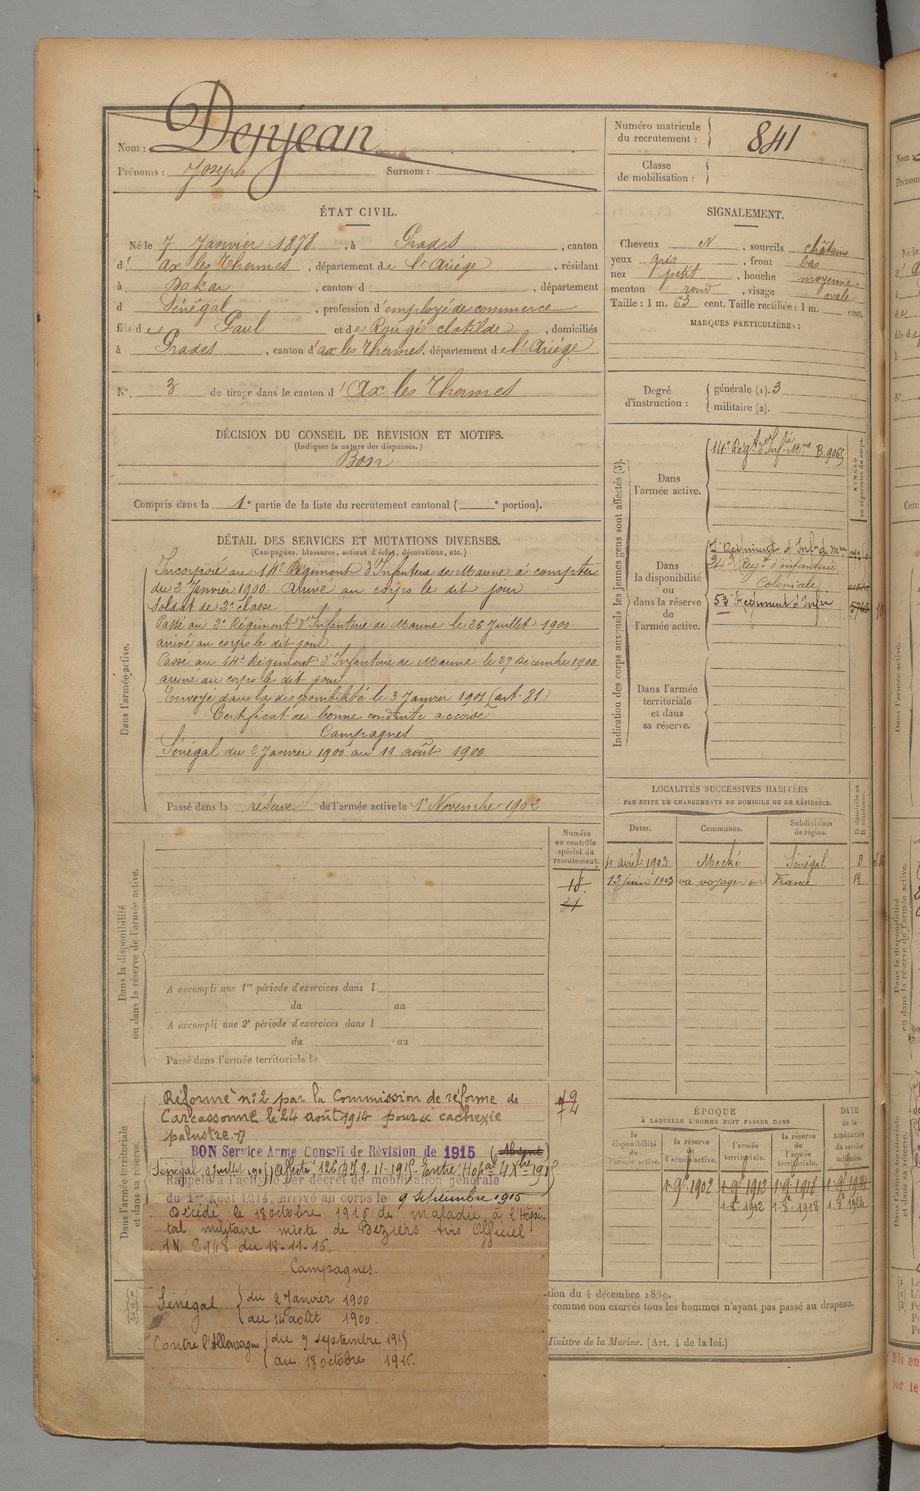 Nom : Dejean
Prénoms : Joseph Surnom :
Numéro matricule du recrutement : 841
Classe de mobilisation :
ÉTAT CIVIL.
Né le 7 Janvier 1878, à Prades, canton
d' ax les Thermes, département de l'Ariège, résidant
à Dakar, canton d , département
d Sénégal, profession d'employé de commerce
fils de Paul et de Rouge Clotilde, domiciliés
à Prades, canton d'ax les Thermes, département de l'Ariège
N°. 3 de tirage dans le canton d'Ax les Thermes
DÉCISION DU CONSEIL DE REVISION ET MOTIFS.
(Indiquer la nature des dispenses.)
Bon
Compris dans la 1e partie de la liste du recrutement cantonal ( e portion).
SIGNALEMENT.
Cheveux N, sourcils châtains
yeux gris, front bas
nez petit, bouche moyenne
menton rond, visage ovale
Taille : 1 m. 63 cent. Taille rectifiée : 1 m. cent.
MARQUES PARTICULIÈRES :
Degré d'instruction : générale (1). 3
militaire (2).
DÉTAIL DES SERVICES ET MUTATIONS DIVERSES.
(Campagnes, blessures, actions d'éclat, décorations, etc.)
Dans l'armée active.
Incorporé au 14e Régiment d'Infanterie de Marine à compter
du 2 Janvier 1900. Arrivé au corps le dit jour
Soldat de 2e classe
Passé au 2e Régiment d'Infanterie de Marine le 26 Juillet 1900
arrivé au corps le dit jour.
Passé au 14e Régiment d'Infanterie de Marine le 27 Décembre 1900
arrivé au corps le dit jour
Envoyé dans la disponibilité le 3 Janvier 1901 (art. 81)
Certificat de bonne conduite accordé
Campagnes
Sénégal du 2 Janvier 1900 au 11 août 1900
Passé dans la réserve de l'armée active le 1er Novembre 1902
Indication des corps auxquels les jeunes gens sont affectés (3).
NUMÉRO au répertoire du corps.
Dans l'armée active.
14e Régt d'Infie Mne B.9065
Dans la disponibilité ou dans la réserve de l'armée active.
2e Régiment d'Infie de Mne
24e Régt d'infanterie
Coloniale
53e Régiment d'Infie
Dans l'armée territoriale et dans sa réserve.
LOCALITÉS SUCCESSIVES HABITÉES
PAR SUITE DE CHANGEMENTS DE DOMICILE OU DE RÉSIDENCE.
Dates. Communes. Subdivisions de région. D. domicile ou R. résidence.
4 avril 1903 Mecké Sénégal D
13 juin 1903 va voyager en France R
Dans la disponibilité ou dans la réserve de l'armée active.
Numéro au contrôle spécial du recrutement.
18.
31
A accompli une 1re période d'exercices dans l
du au
A accompli une 2e période d'exercices dans l
du au
Passé dans l'armée territoriale le
Dans l'armée territoriale et dans sa réserve.
Réformé n° 2 par la Commission de réforme de
Carcassonne le 24 août 1914 pour « cachexie
palustre. »
BON Service Armé Conseil de Révision de 1915 (Absent)
Rappelé à l'activité par décret de mobilisation générale
du 1er Août 1914, arrivé au corps le 9 septembre 1915
Décédé le 18 octobre 1916 de maladie à l'Hôpi-
tal militaire mixte de Béziers avis Officiel
N. 2948 du 18-11-16.
Campagnes.
Sénégal du 2 Janvier 1900
au 14 août 1900.
Contre l'Allemagne du 9 septembre 1915
au 18 octobre 1916.
ÉPOQUE
À LAQUELLE L'HOMME DOIT PASSER DANS
DATE de la LIBÉRATION du service militaire.
la disponibilité de l'armée active. la réserve de l'armée active. l'armée territoriale. la réserve de l'armée territoriale.
1-9bre 1902 1-9bre 1912 1-9bre 1918 1-9bre 1924
1-8bre 1912 1-8bre 1918 1-8bre 1924
tion du 4 décembre 1889.
comme non exercés tous les hommes n'ayant pas passé au drapeau.
Ministre de la Marine. (Art. 4 de la loi.)